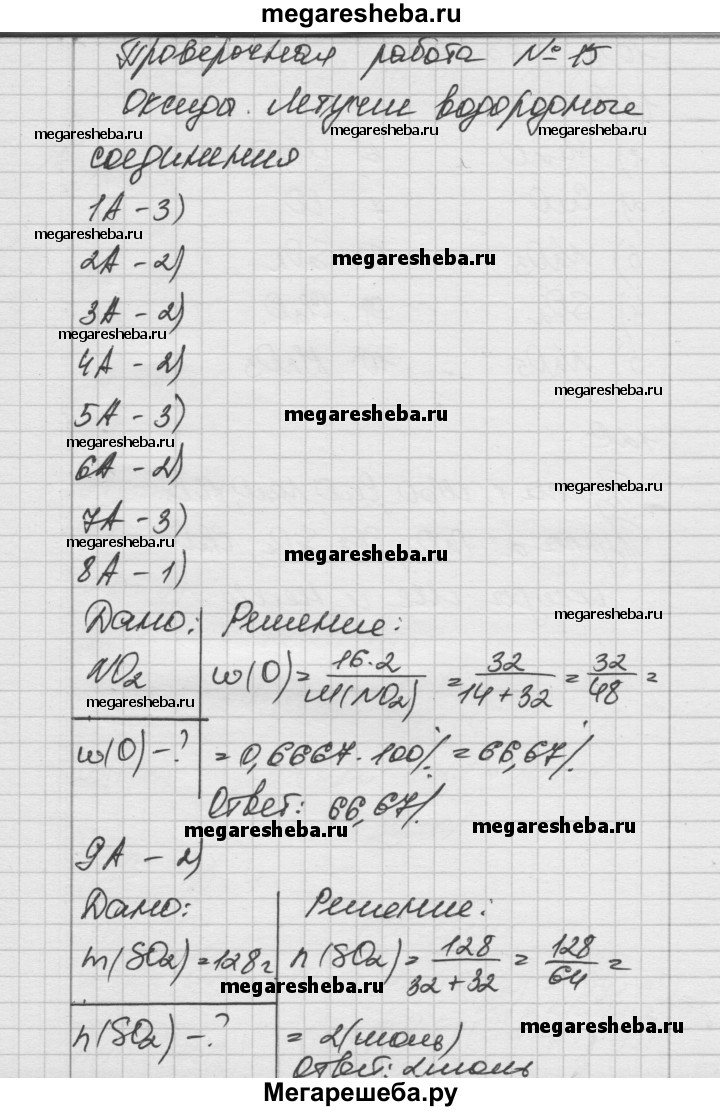 megaresheba.ru
Проверочная работа № 15
Оксиды. Летучие водородные
megaresheba.ru megaresheba.ru megaresheba.ru
соединения
1А - 3)
megaresheba.ru
2А - 2)
megaresheba.ru
3А - 2)
megaresheba.ru
4А - 2)
megaresheba.ru
5А - 3)
megaresheba.ru
megaresheba.ru
6А - 2)
megaresheba.ru
7А - 3)
megaresheba.ru
megaresheba.ru
8А - 1)
Дано: Решение:
megaresheba.ru
NO2 w(O) = 16·2 / M(NO2) = 32 / 14+32 = 32 / 48 =
megaresheba.ru
w(O) - ? = 0,6667 · 100% = 66,67%
Ответ: 66,67%
megaresheba.ru megaresheba.ru
9А - 2)
Дано: Решение:
m(SO2) = 128г n(SO2) = 128 / 32+32 = 128 / 64 =
megaresheba.ru
n(SO2) - ? = 2(моль)
megaresheba.ru
Ответ: 2моль
Мегарешеба.ру